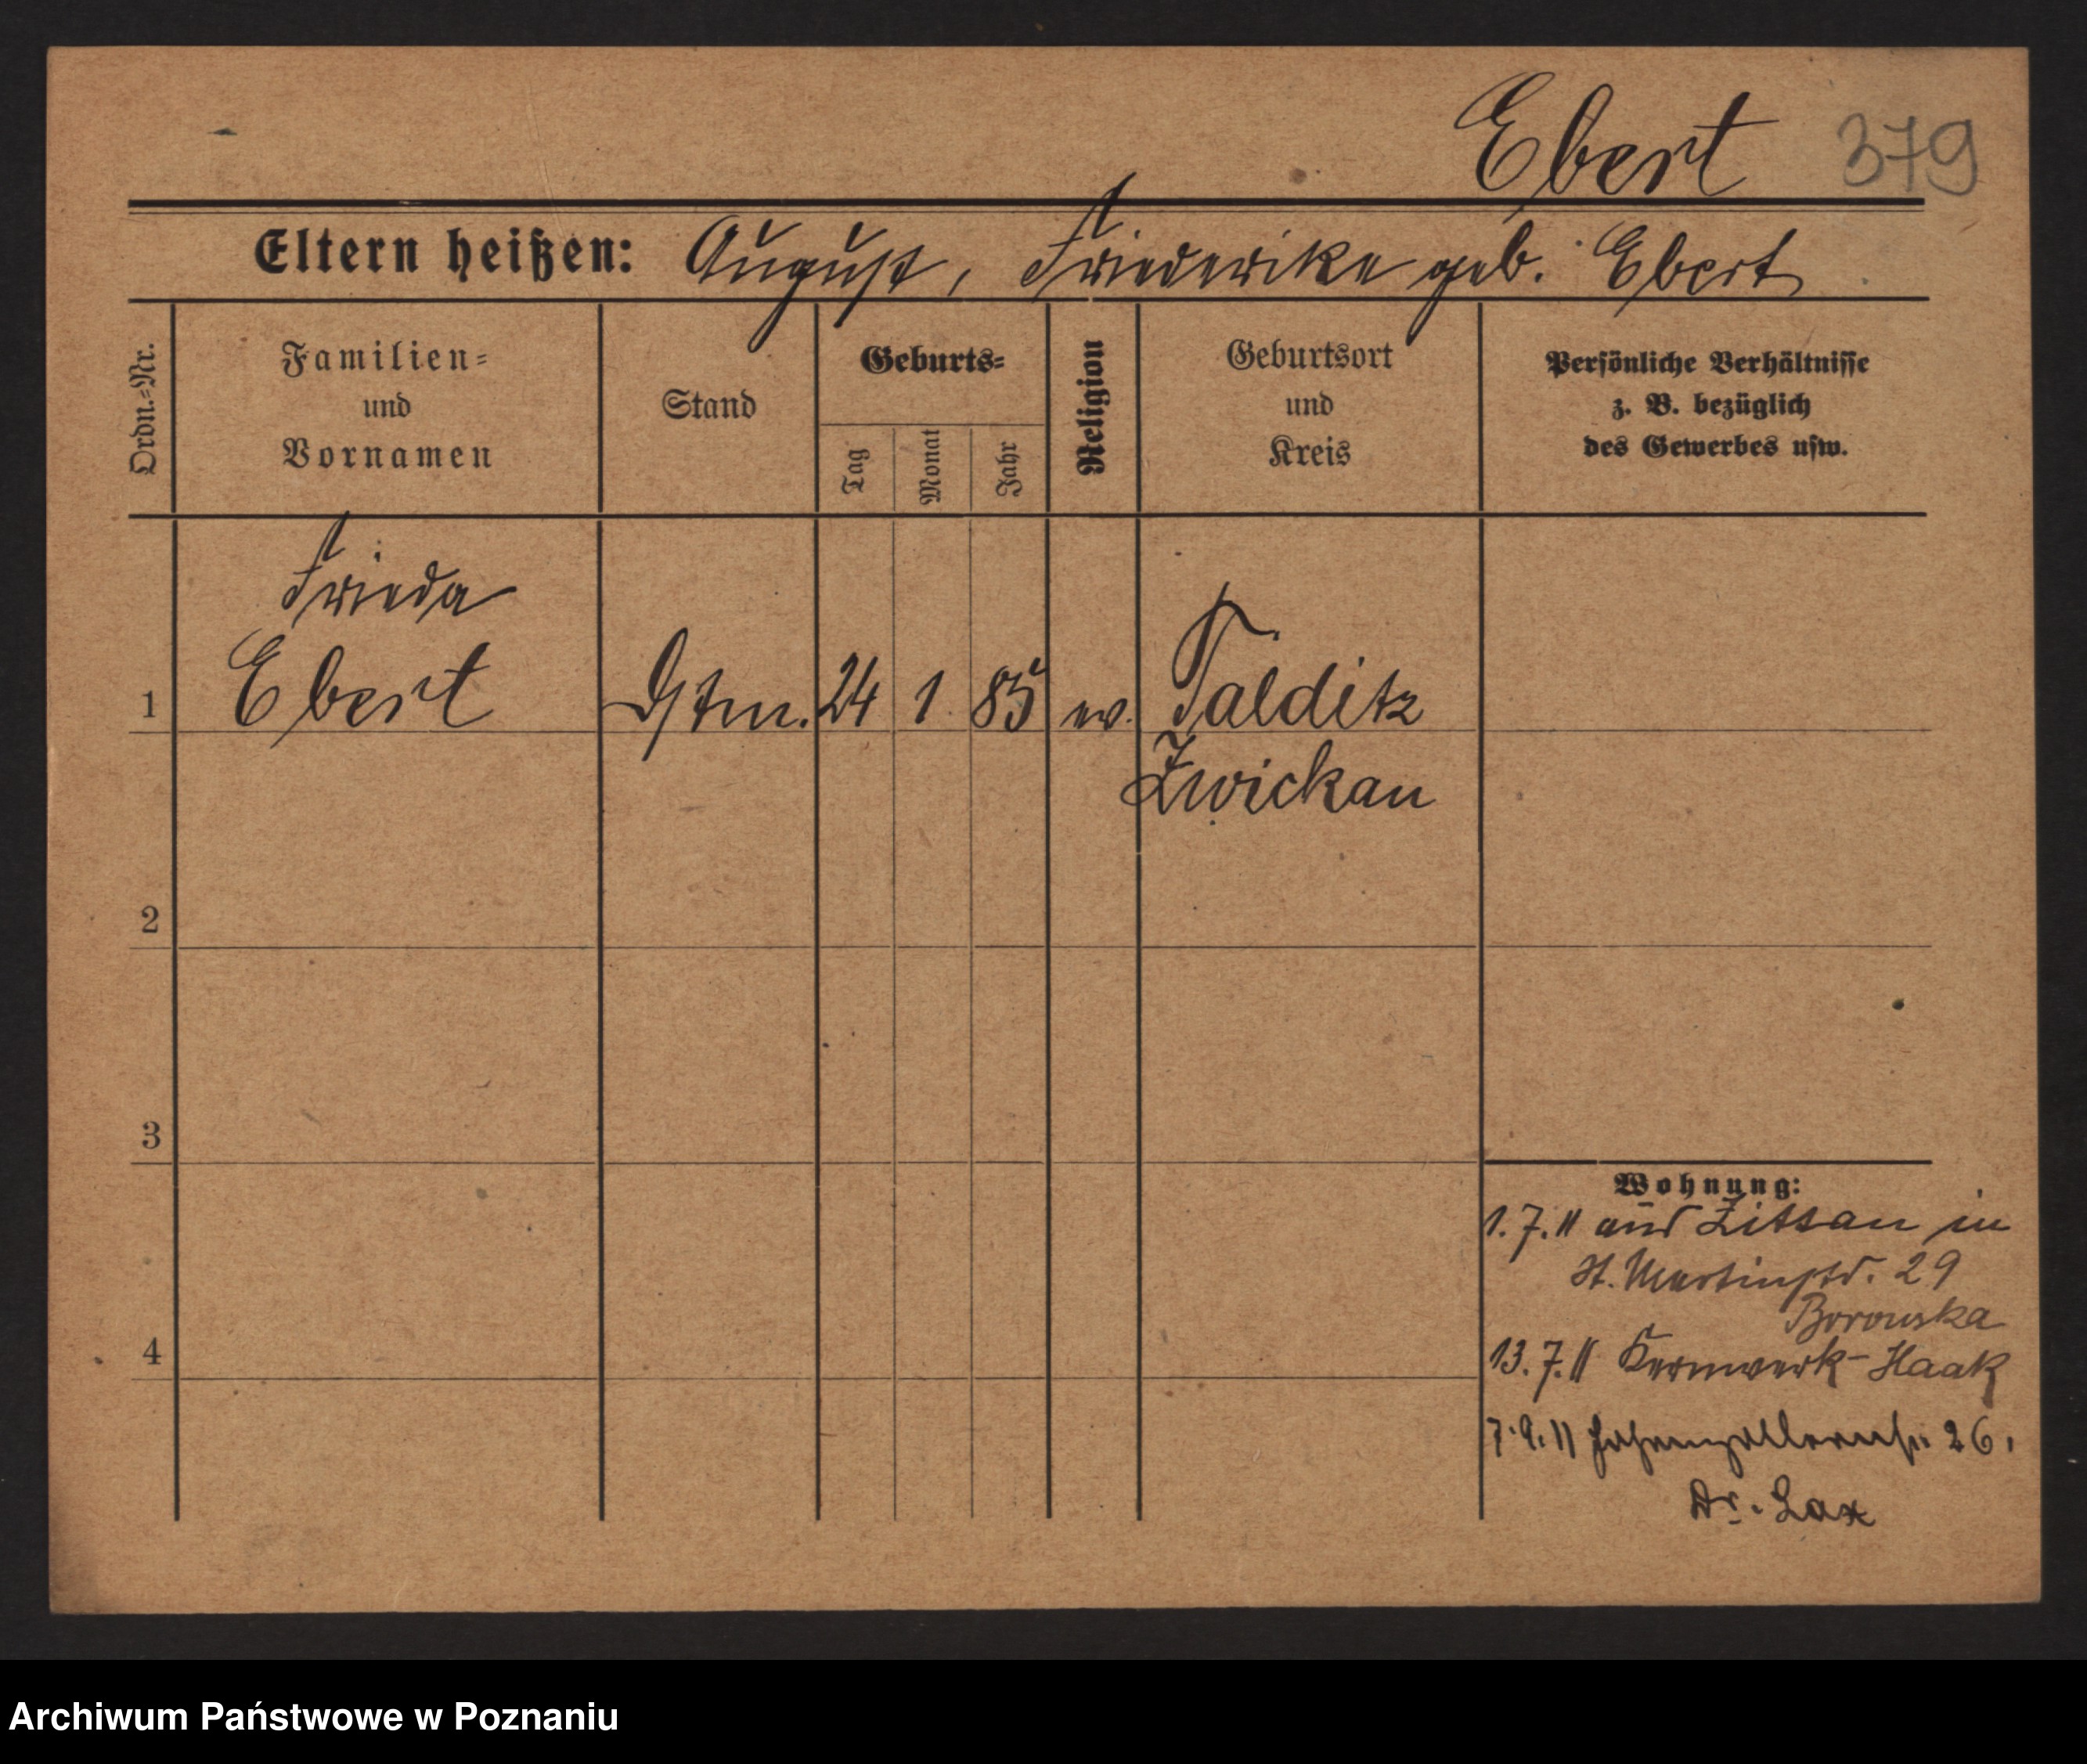 Ebert 379
Eltern heißen: August, Friederike geb. Ebert
Ordn.-Nr.
Familien-
und
Vornamen
Stand
Geburts-
Tag
Monat
Jahr
Religion
Geburtsort
und
Kreis
Persönliche Verhältnisse
z. B. bezüglich
des Gewerbes usw.
Frieda
1 Ebert 24 1 85 ev. Talditz
Zwickau
2
3
4
Wohnung:
1.7.11 aus Zittau in
St. Martinstr. 29
Borowska
13.7.11 Kernwerk-Haak
7.9.11 Hohenzollernstr. 26.
Dr. Lax
Archiwum Państwowe w Poznaniu